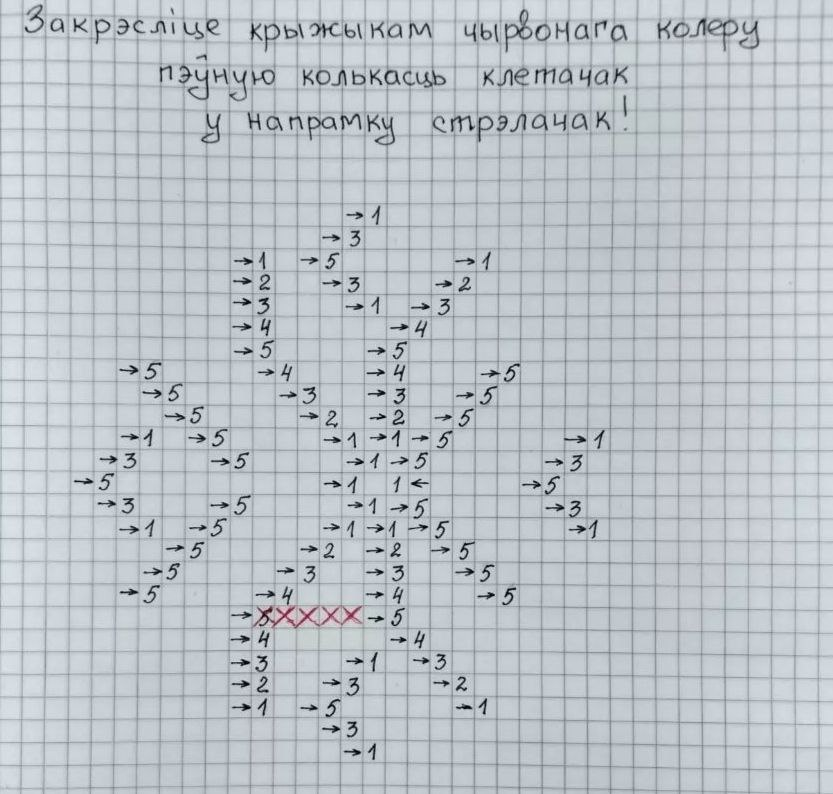 Закрэсліце крыжыкам чырвонага колеру
пэўную колькасць клетачак
у напрамку стрэлачак!
→1
→3
→1 →5 →1
→2 →3 →2
→3 →1 →3
→4 →4
→5 →5
→5 →4 →4 →5
→5 →3 →3 →5
→5 →2 →2 →5
→1 →5 →1 →1 →5 →1
→3 →5 →1 →5 →3
→5 →1 1← →5
→3 →5 →1 →5 →3
→1 →5 →1 →1 →5 →1
→5 →2 →2 →5
→5 →3 →3 →5
→5 →4 →4 →5
→5 →5
→4 →4
→3 →1 →3
→2 →3 →2
→1 →5 →1
→3
→1